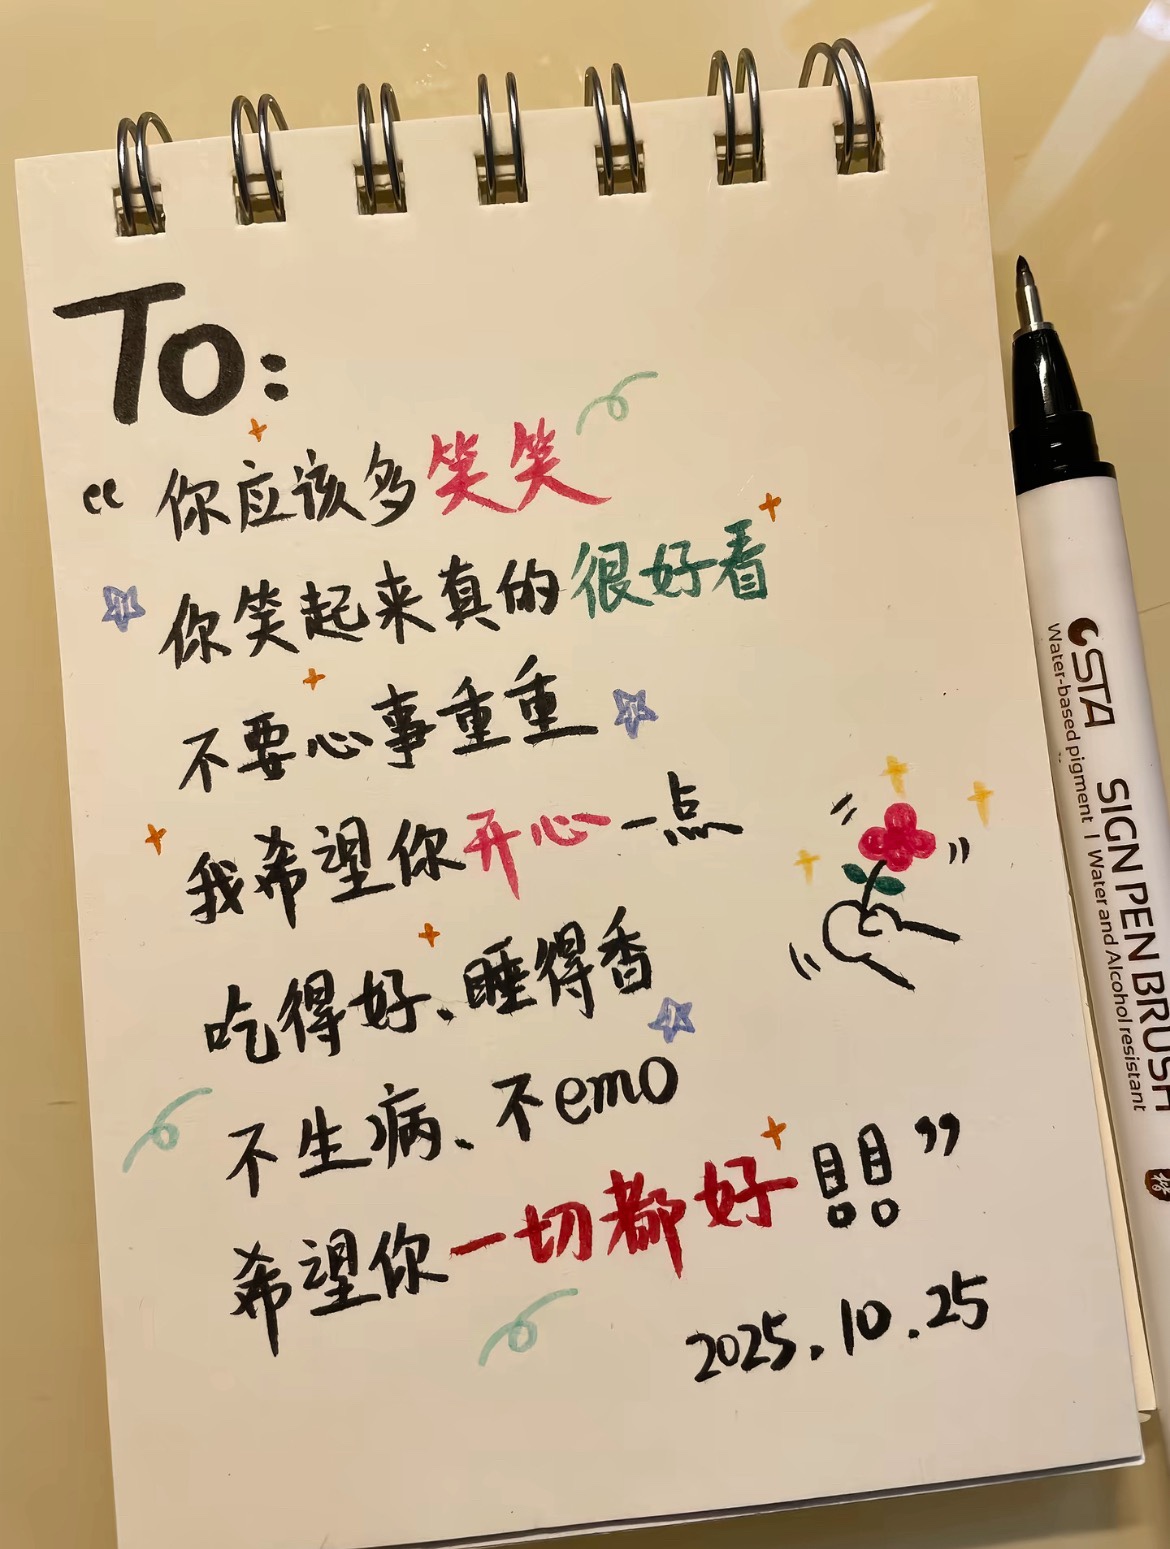 To:
“你应该多笑笑
你笑起来真的很好看
不要心事重重
我希望你开心一点
吃得好、睡得香
不生病、不emo
希望你一切都好!!”
2025.10.25
STA
Water-based pigment | Water and Alcohol resistant
SIGN PEN BRUSH